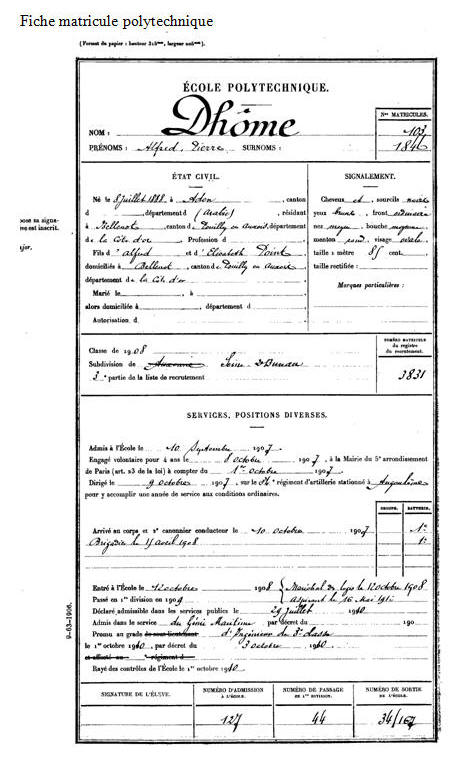 Fiche matricule polytechnique
(Format du papier : hauteur 315mm, largeur 205mm).
ÉCOLE POLYTECHNIQUE.
Dhôme
NOM :
Nos MATRICULES.
103
1846
PRÉNOMS : Alfred, Pierre SURNOMS :
ÉTAT CIVIL.
SIGNALEMENT.
Né le 8 juillet 1888, à Aden, canton
d , département d (Arabie), résidant
à Bellenot, canton de Pouilly en Auxois, département
de la Côte d'or, Profession d
Fils d'Alfred et d'Elisabeth Point
domiciliés à Bellenot, canton de Pouilly en Auxois
département de la Côte d'or
Marié le , à ,
alors domiciliée à , département d
Autorisation d
Cheveux et sourcils noirs
yeux bruns, front ordinaire
nez moyen, bouche moyenne
menton rond, visage ovale
taille 1 mètre 85 cent.
taille rectifiée :
Marques particulières :
pose sa signa-
me est inscrit.
ajor,
Classe de 1908
Subdivision de Auxonne Seine 2e Bureau
3e partie de la liste de recrutement
NUMÉRO MATRICULE
du registre
du recrutement.
3831
SERVICES, POSITIONS DIVERSES.
Admis à l'École le 10 Septembre 1907
Engagé volontaire pour 4 ans le 8 octobre 1907, à la Mairie du 5e arrondissement
de Paris (art. 23 de la loi) à compter du 1er octobre 1907
Dirigé le 9 octobre 1907, sur le régiment d'artillerie stationné à Angoulême
pour y accomplir une année de service aux conditions ordinaires.
GROUPE. BATTERIE.
Arrivé au corps et 2e canonnier conducteur le 10 octobre 1907 1e
Brigadier le 15 avril 1908 1e
Entré à l'École le 12 octobre 1908 Maréchal des logis le 12 octobre 1908
Passé en 1re division en 1909 aspirant le 16 Mai 1910
Déclaré admissible dans les services publics le 29 juillet 1910
Admis dans le service du Génie Maritime, par décret du 190
Promu au grade de sous-lieutenant d'Ingénieur de 3e classe
le 1er octobre 1910, par décret du 3 octobre 1910
et affecté au régiment d
Rayé des contrôles de l'École le 1er octobre 1910
9-03-1906.
SIGNATURE DE L'ÉLÈVE.
NUMÉRO D'ADMISSION
À L'ÉCOLE.
NUMÉRO DE PASSAGE
EN 1re DIVISION.
NUMÉRO DE SORTIE
DE L'ÉCOLE.
127
44
34/167